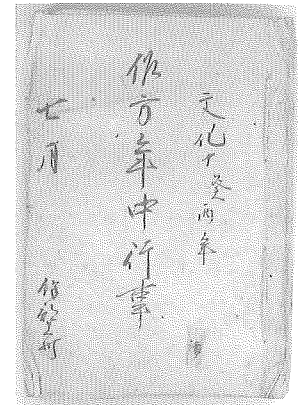 文化十癸酉年
作方年中行事
七月